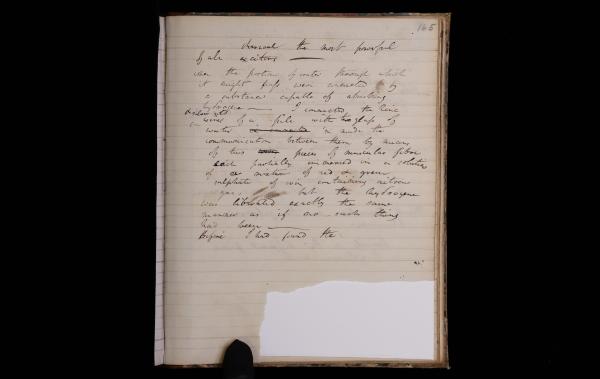 145
the most powerful
of all exciters
over the portion of water through which
it might pass were connected by
a substance capable of absorbing
hydrogene — I connected the zinc
wires of a pile with two glasses of
water & made the
communication between them by means
of two pieces of muscular fibre
each partially immersed in a solution
of a mixture of red & green
sulphate of iron containing nitrous
gas, but the hydrogene
was liberated exactly the same
manner as if no such thing
had been
Before I had found the